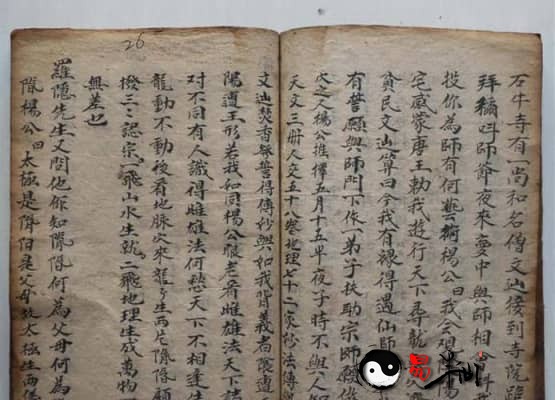 石牛寺有一尚和名僧文辿接到寺院跪
拜稱呌師爺夜來夢中與師相
投你為師有何藝術楊公曰我會
宅感蒙唐王勅我遊行天下尋龍
貧民文辿算曰今我有禄得遇仙師
有誓願與師門下作一弟子扶助宗師
次之人楊公推擇五月十五早夜子時不與人知
天文三册人文五十八卷地理七十二家秒法傳與
26
文辿焚香發誓得傳妙與如我背義者
陽遭王形若我如同楊公服老看雌雄法天下諸
对不同有人識得雌雄法何愁天下不相逢
龍動不動後看地脉穴來龍生兩片
撥三三認宗一飛山水生就二飛地理生成萬物
無差也
羅隱先生又問他你知何為父母何為
楊公曰太極是陰阳是父母故太極生兩儀
易